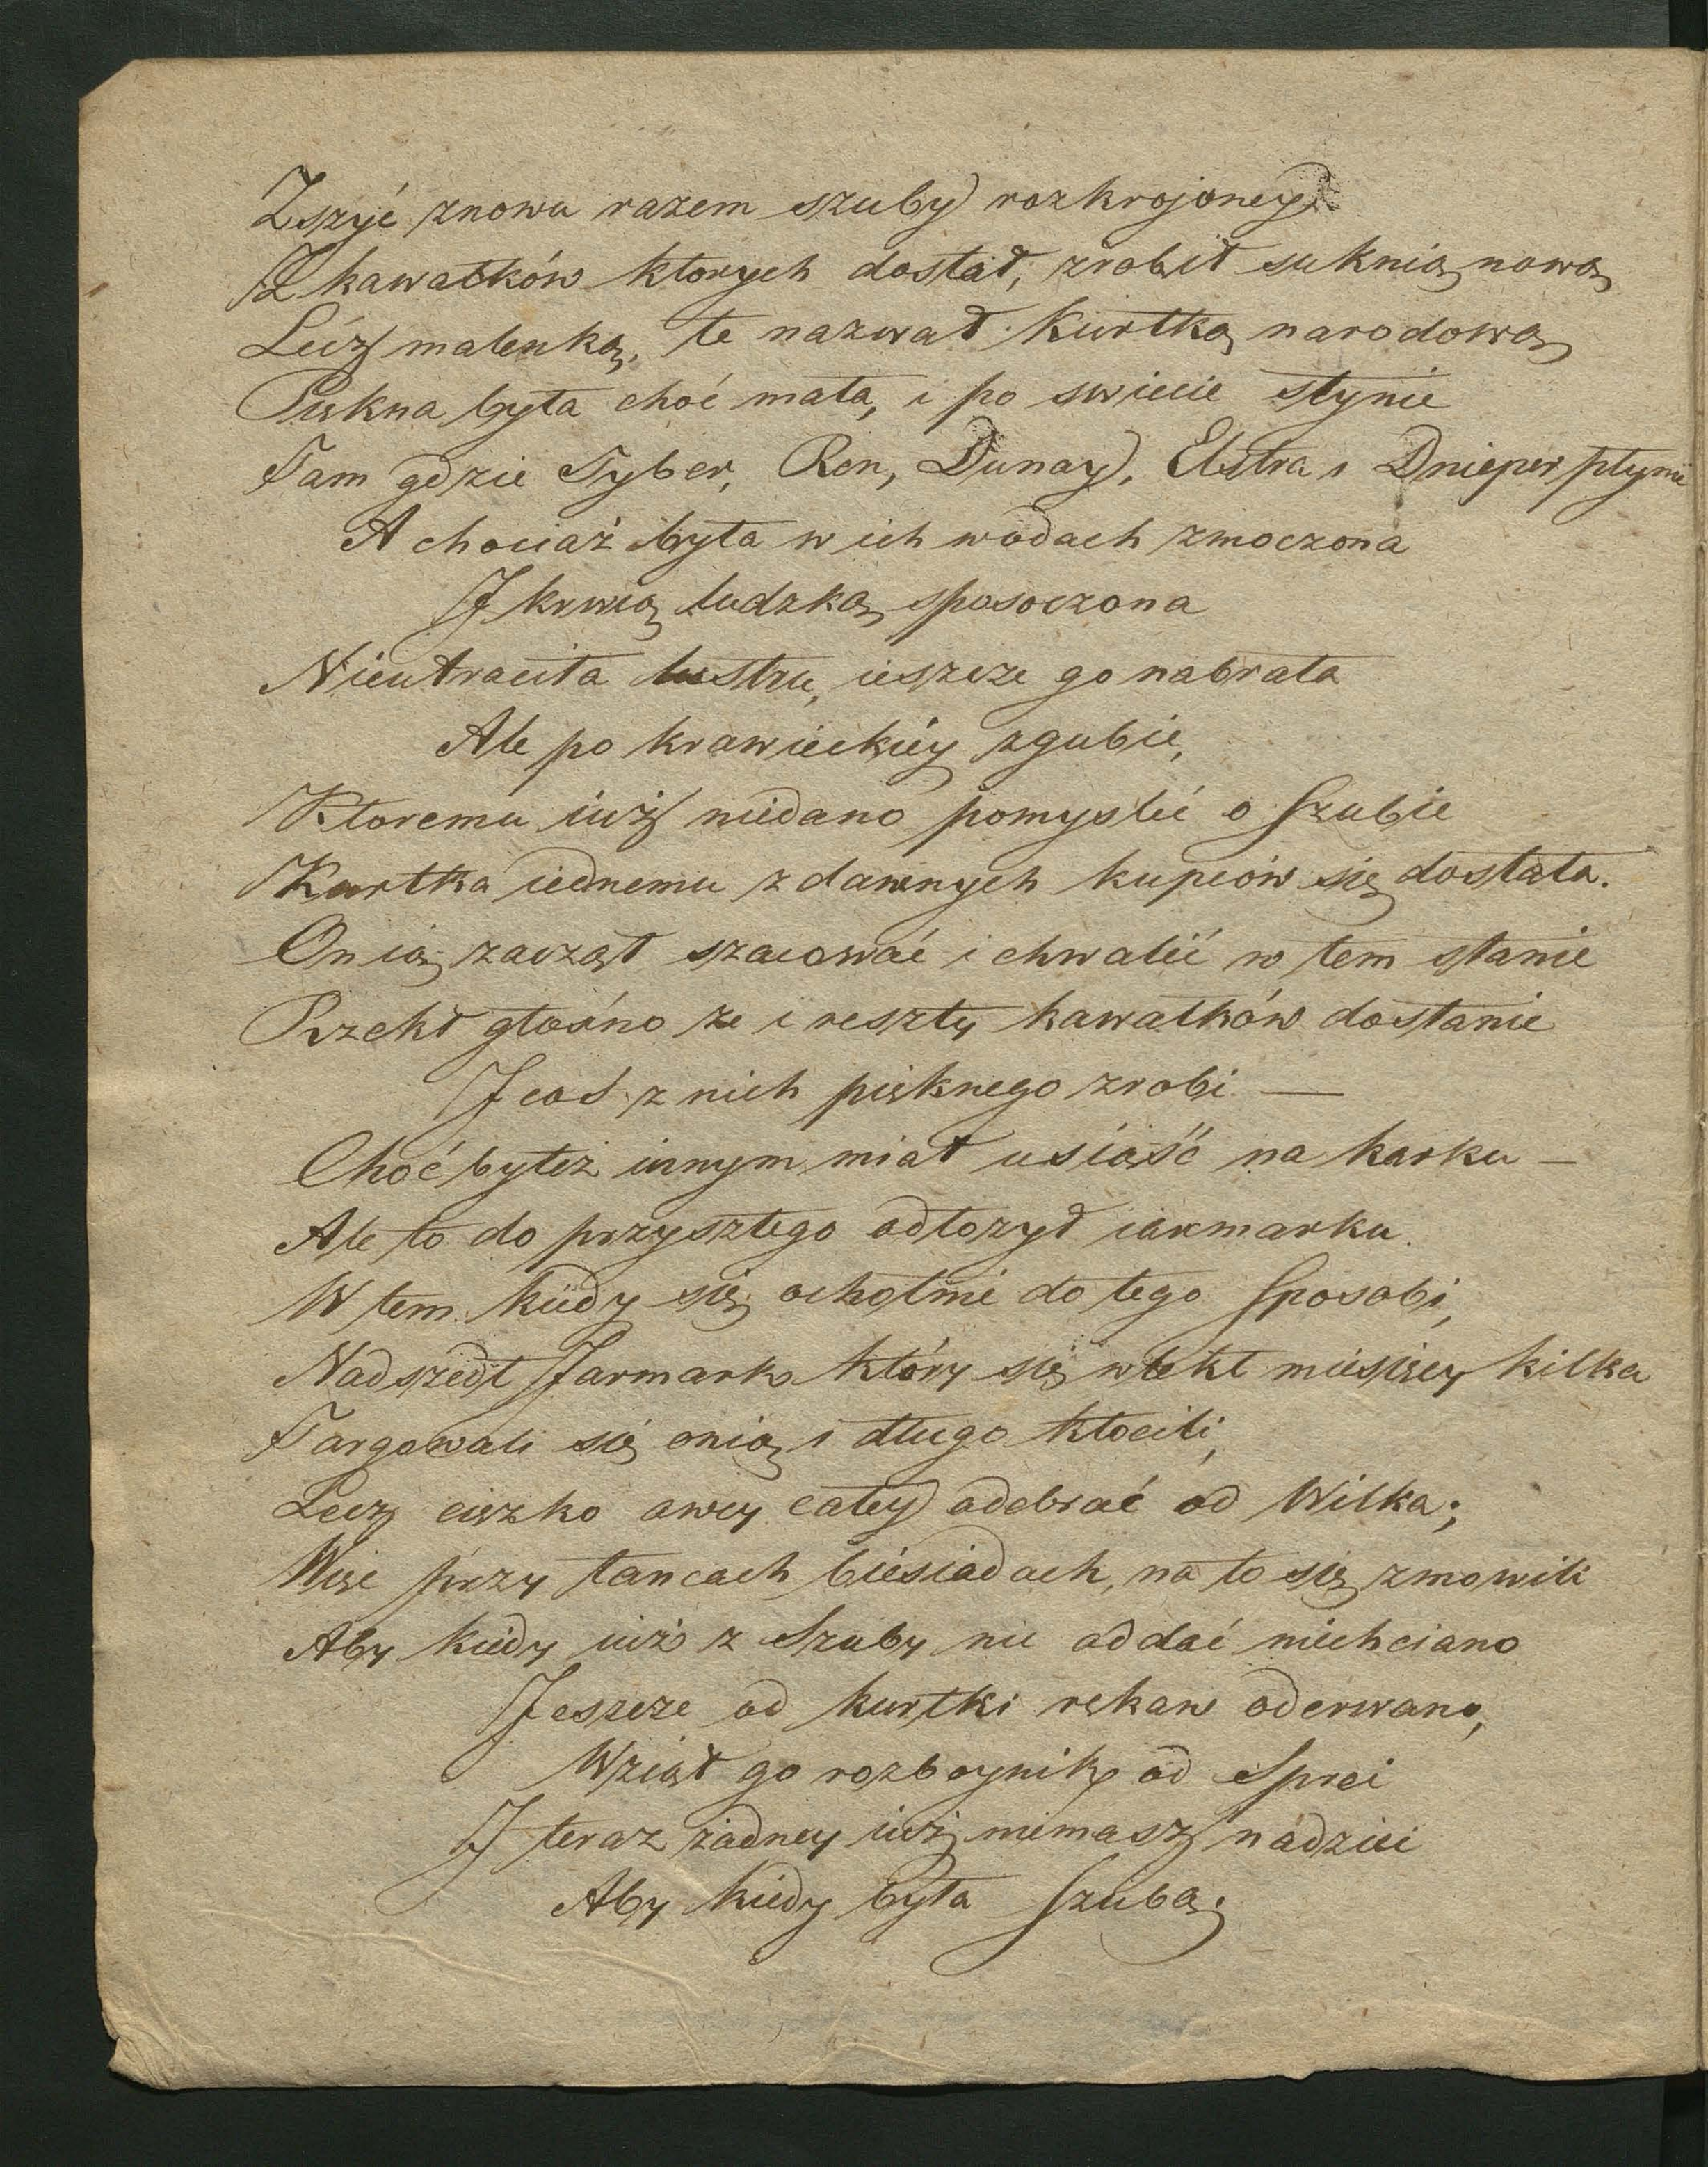 Zszyć znowu razem szuby rozkrojoney
Z kawałków ktorych dostał, zrobił suknią nową
Lecz malenką, te nazwał kurtką narodową
Piękna była choć mała, i po swiecie słynie
Tam gdzie Tyber, Ren, Dunay, Elstra i Dnieper płynie
A chociaż była w ich wodach zmoczona
I krwią ludzką sposoczona
Nieutraciła lustru, ieszcze go nabrała
Ale po krawieckiéy zgubie,
Ktoremu iuż niedano pomyslić o Szubie
Kurtka iednemu z dawnych kupców się dostała.
On ią zaczął szacować i chwalić w tem stanie
Rzekł głośno że i reszty kawałków dostanie
I coś z nich pięknego zrobi —
Choć byteż innym miał usiąść na karku —
Ale to do przyszłego odłozył iarmarku.
W tem kiedy się ochotnie do tego Sposobi,
Nadszedł Jarmark który się wlekł miesięcy kilka
Targowali się onią i długo kłocili,
Lecz cięzko owcy całey odebrać od Wilka;
Więc przy tancach biesiadach, na to się zmowili
Aby kiedy iuż z Szuby nic oddać niechciano
Jeszcze od kurtki rękaw oderwano,
Wziął go rozboynik od Sprei
I teraz żadney iuż niemasz nadziei
Aby kiedy była Szubą.